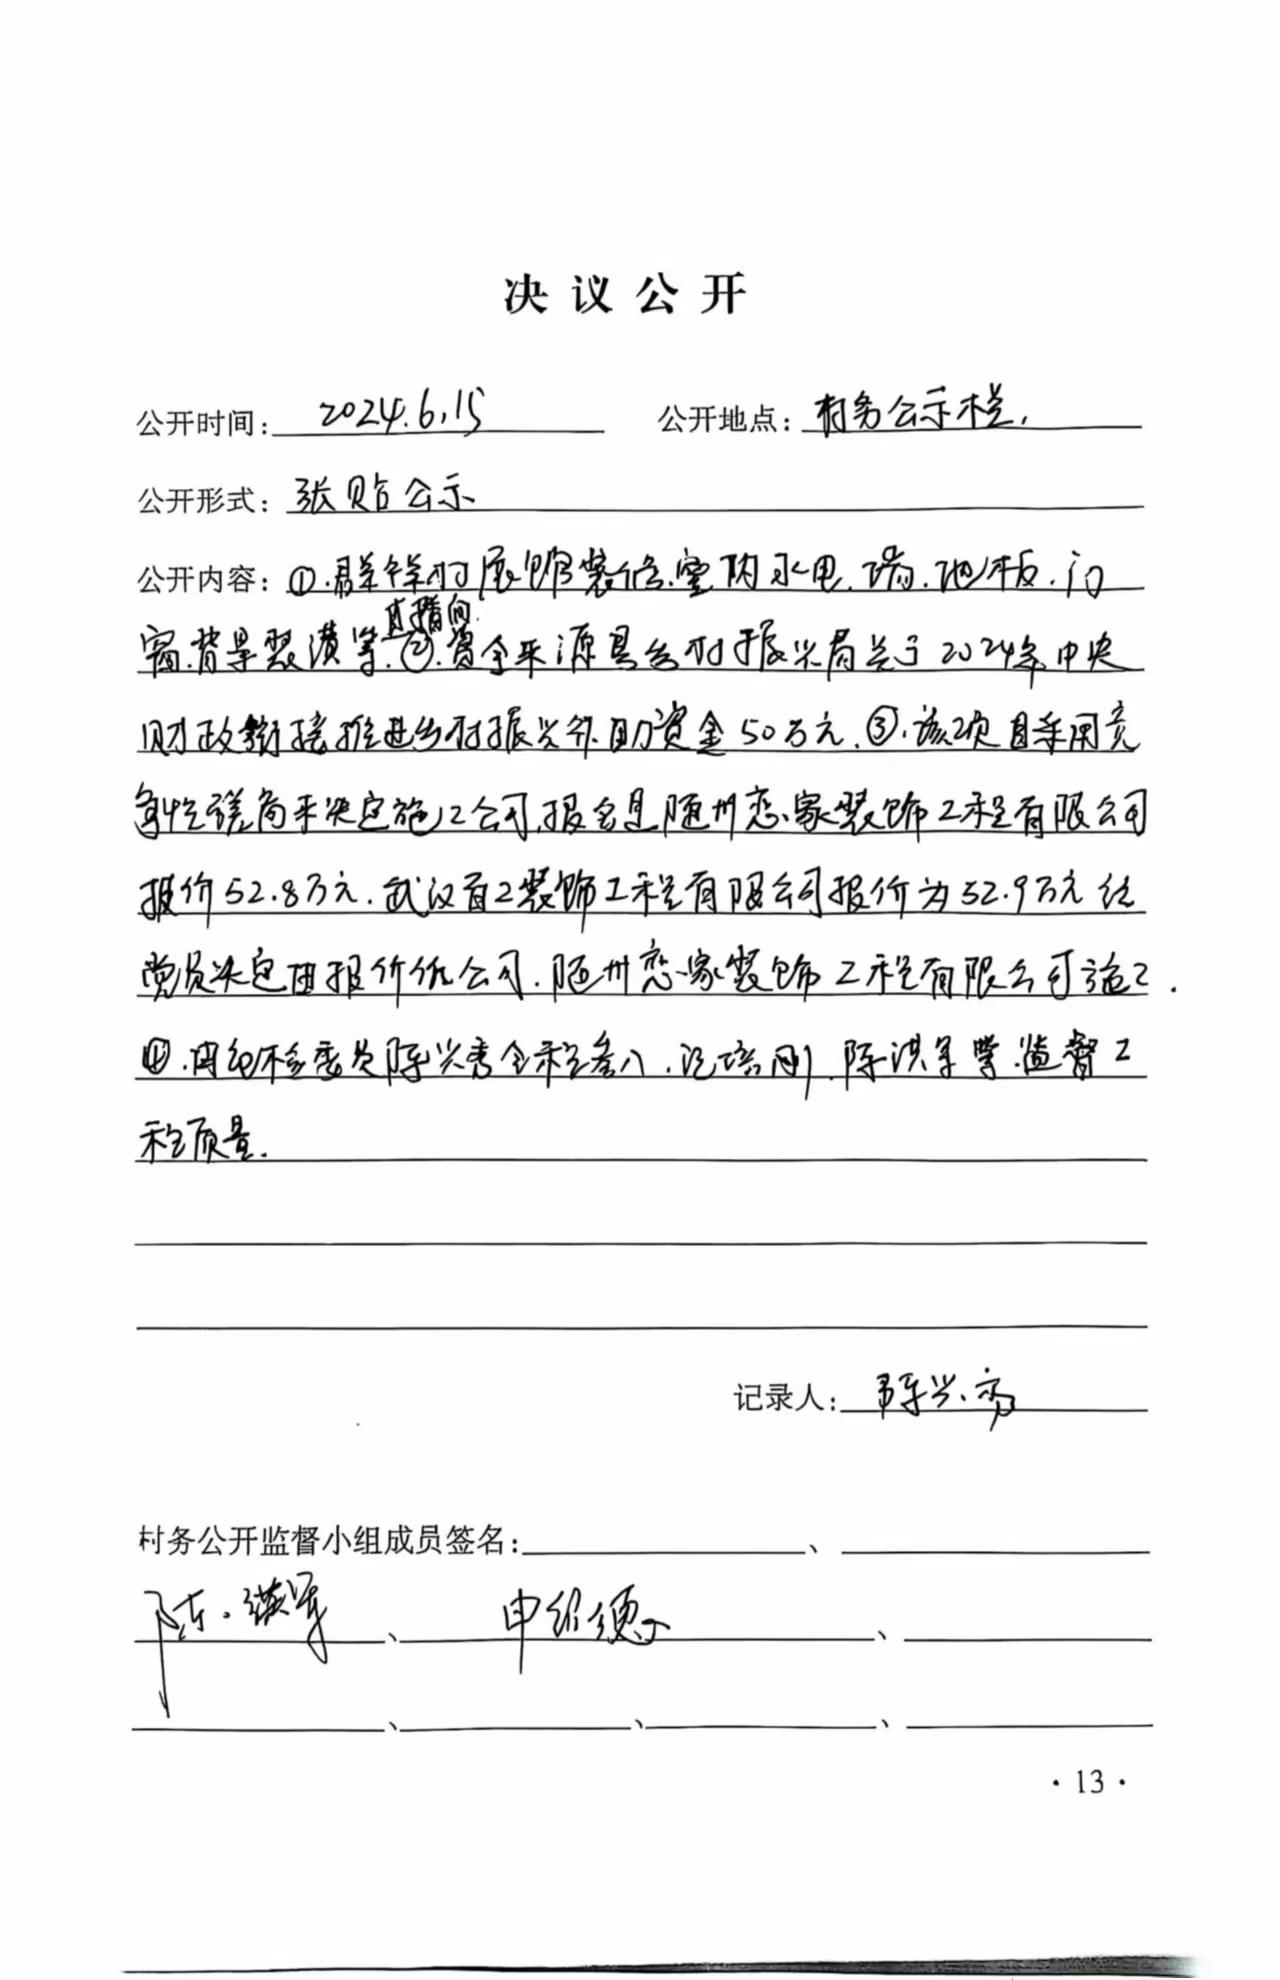 决议公开
公开时间: 2024.6.15 公开地点: 村务公示栏.
公开形式: 张贴公示
公开内容: ①.群祥村展馆装修.室内水电.墙.地板.门
窗.背景装潢等.②.资金来源县乡村振兴局关于2024年中央
财政衔接推进乡村振兴补助资金50万元.③.该项目采用竞
争性磋商来决定施工公司.报名是随州恋家装饰工程有限公司
报价52.8万元.武汉百工装饰工程有限公司报价为52.9万元经
党员决定由报价低公司.随州恋家装饰工程有限公司施工.
④.由纪检委员陈兴秀全程参入.培刚.陈洪军等.监督工
程质量.
记录人: 陈兴秀
村务公开监督小组成员签名: 、
陈洪军、申绍德、
、 、 、
·13·